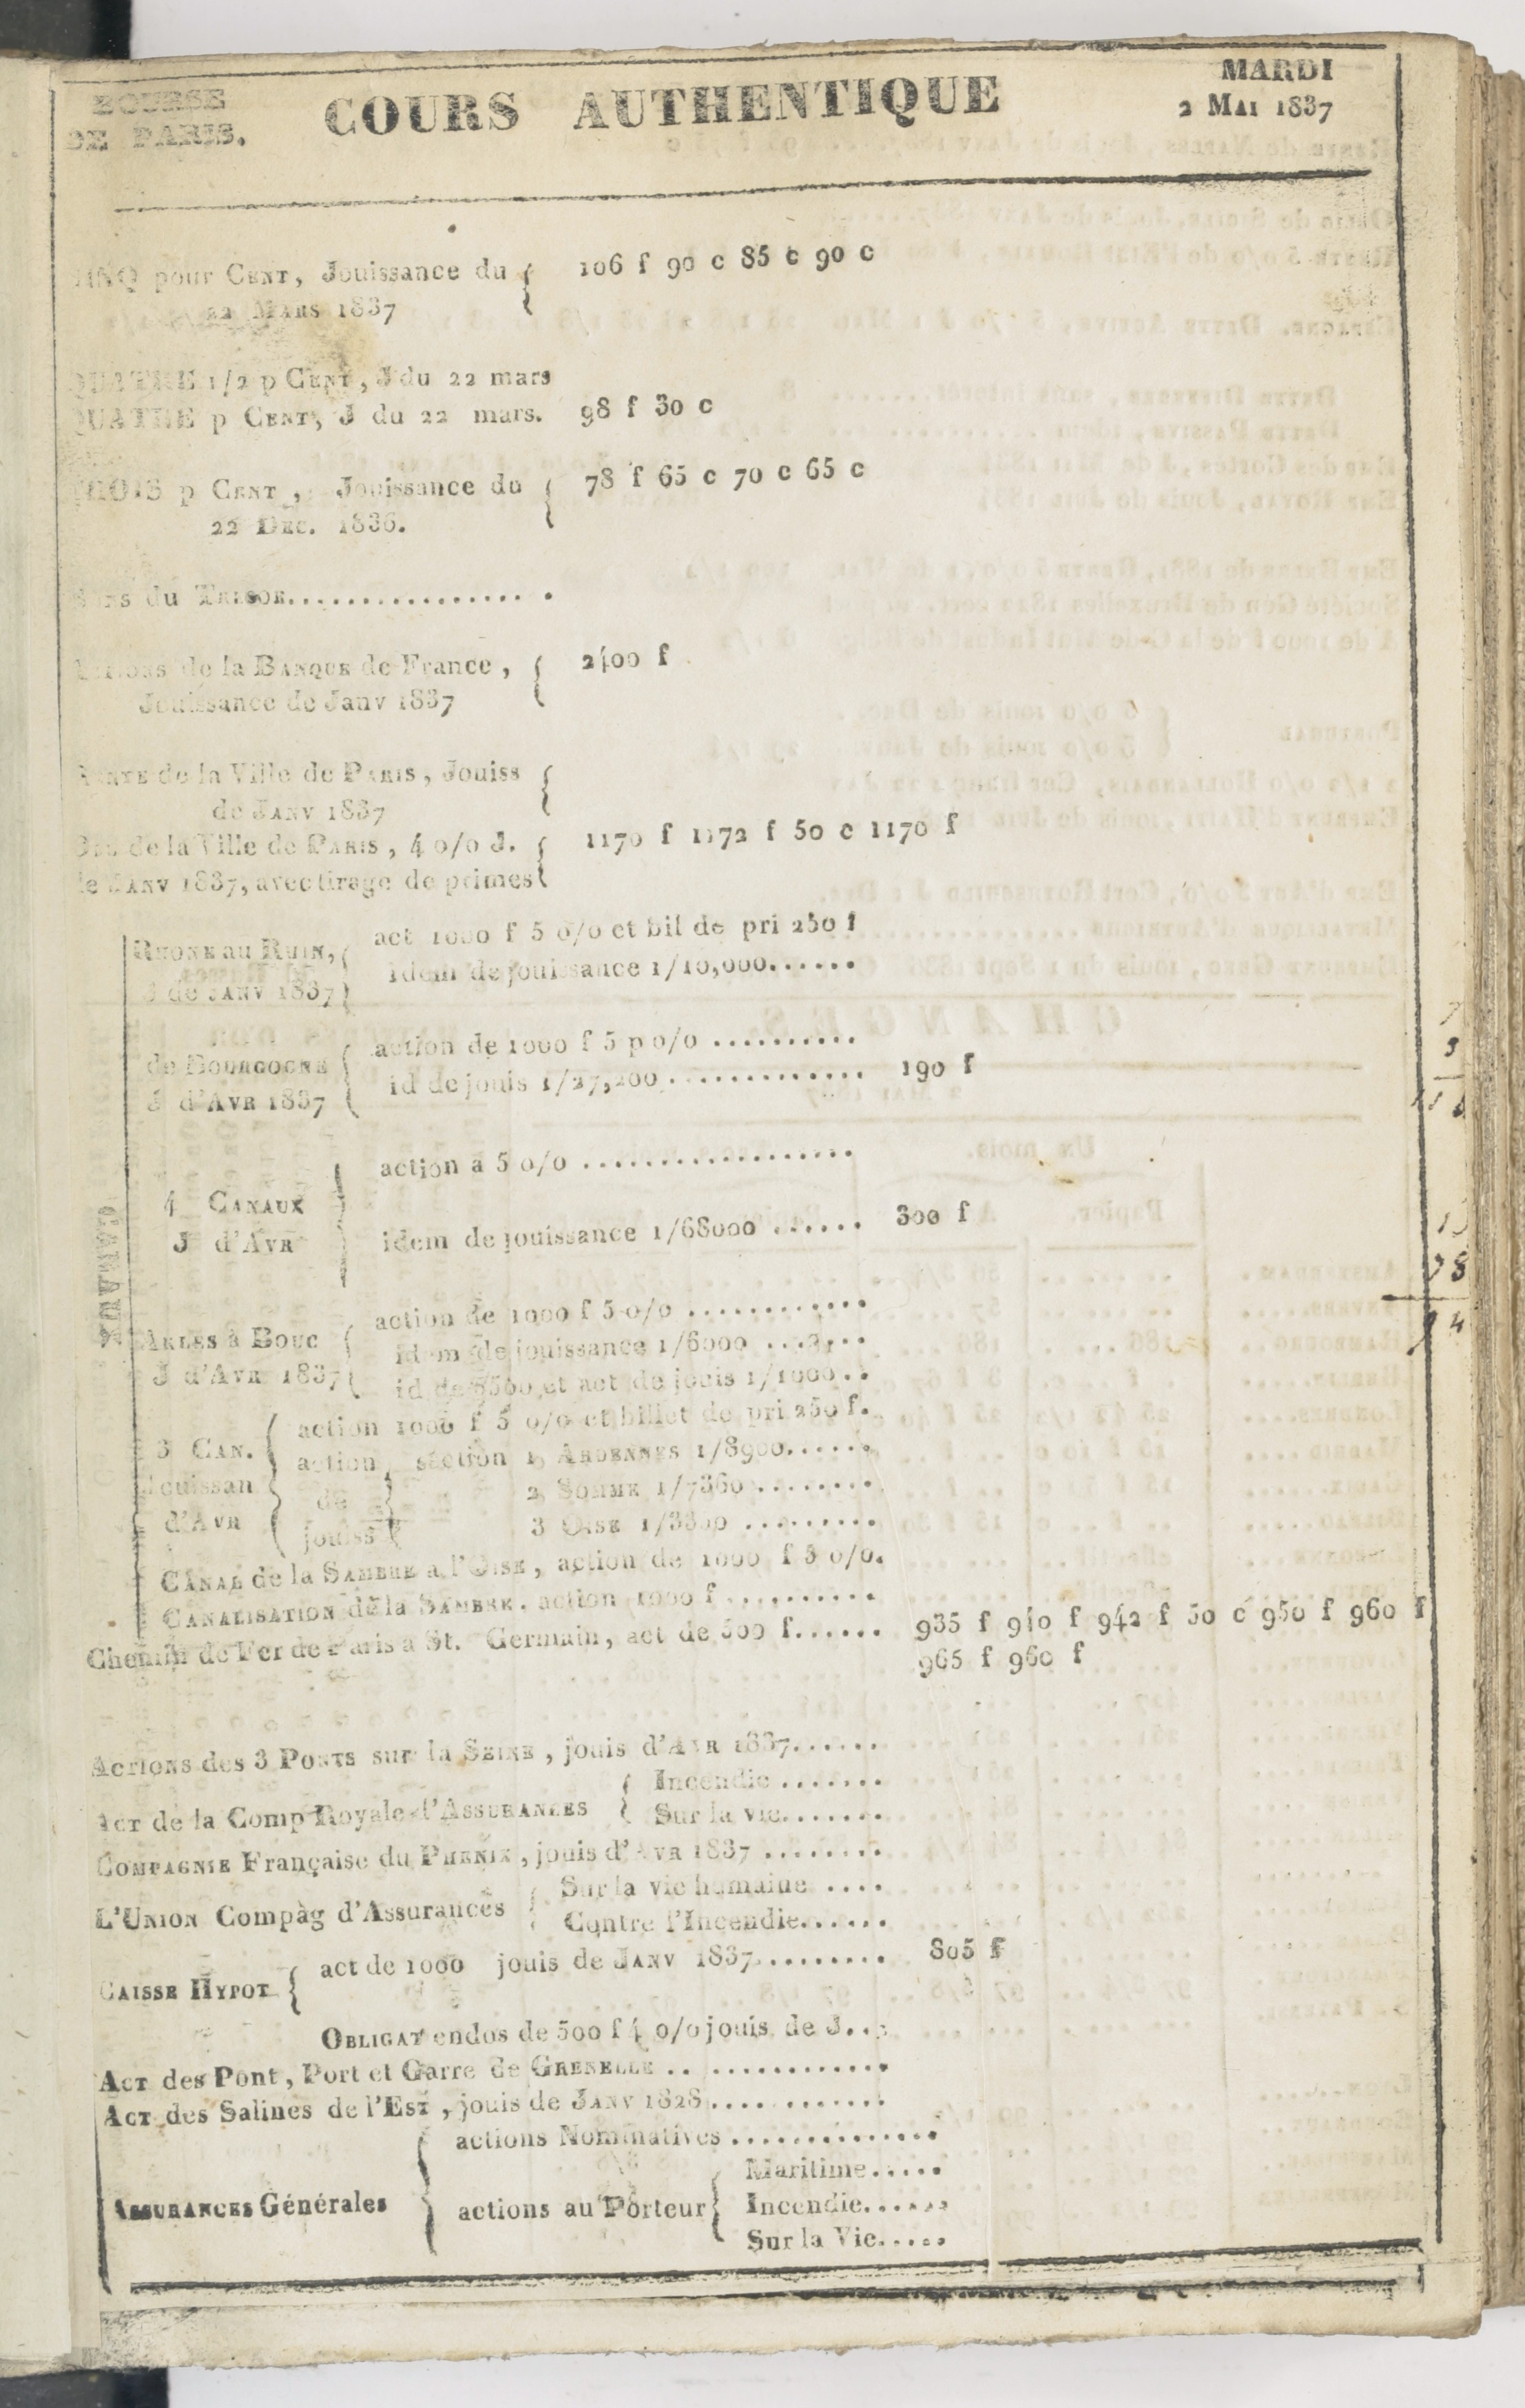 BOURSE
DE PARIS.
COURS AUTHENTIQUE
MARDI
2 MAI 1837
CINQ pour CENT, Jouissance du { 106 f 90 c 85 c 90 c
22 MARS 1837
QUATRE 1/2 p CENT, J du 22 mars
QUATRE p CENT, J du 22 mars. 98 f 30 c
TROIS p CENT, Jouissance du { 78 f 65 c 70 c 65 c
22 DEC. 1836.
Bons du TRESOR.................
Actions de la BANQUE de France, { 2400 f
Jouissance de Janv 1837
RENTE de la Ville de PARIS, Jouiss {
de JANV 1837
de la Ville de PARIS, 4 o/o J. { 1170 f 1172 f 50 c 1170 f
de JANV 1837, avec tirage de primes
CANAUX
RHONE au RHIN, { act 1000 f 5 o/o et bil de pri 250 f
J de JANV 1837 idem de jouissance 1/10,000......
de BOURGOGNE { action de 1000 f 5 p o/o ..........
J d'AVR 1837 id de jouis 1/27,200 ............. 190 f
4 CANAUX
J d'AVR
action a 5 o/o ..................
idem de jouissance 1/68000 ...... 300 f
ARLES à BOUC { action de 1000 f 5 o/o ............
J d'AVR 1837 idem de jouissance 1/6000 ......
id de 8500 et act de jouis 1/1000..
3 CAN.
Jouissan
d'AVR
action 1000 f 5 o/o et billet de pri 250 f.
action de jouiss { section 1 ARDENNES 1/8900......
2 SOMME 1/7360 ........
3 OISE 1/3300 .........
CANAL de la SAMBRE a l'OISE, action de 1000 f 5 o/o.
CANALISATION de la SAMBRE. action 1000 f ..........
Chemin de Fer de Paris à St. Germain, act de 500 f...... 935 f 940 f 942 f 50 c 950 f 960 f
965 f 960 f
ACTIONS des 3 PONTS sur la SEINE, jouis d'AVR 1837......
ACT de la Comp Royale d'ASSURANCES { Incendie .......
Sur la vie.......
COMPAGNIE Française du PHENIX, jouis d'AVR 1837 ........
L'UNION Compàg d'Assurances { Sur la vie humaine ....
Contre l'Incendie......
CAISSE HYPOT { act de 1000 jouis de JANV 1837......... 805 f
OBLIGAT endos de 500 f 4 o/o jouis de J...
ACT des Pont, Port et Garre de GRENELLE .. ............
ACT des Salines de l'EST, jouis de JANV 1828............
ASSURANCES Générales { actions Nominatives ..............
actions au Porteur { Maritime.....
Incendie......
Sur la Vie.....